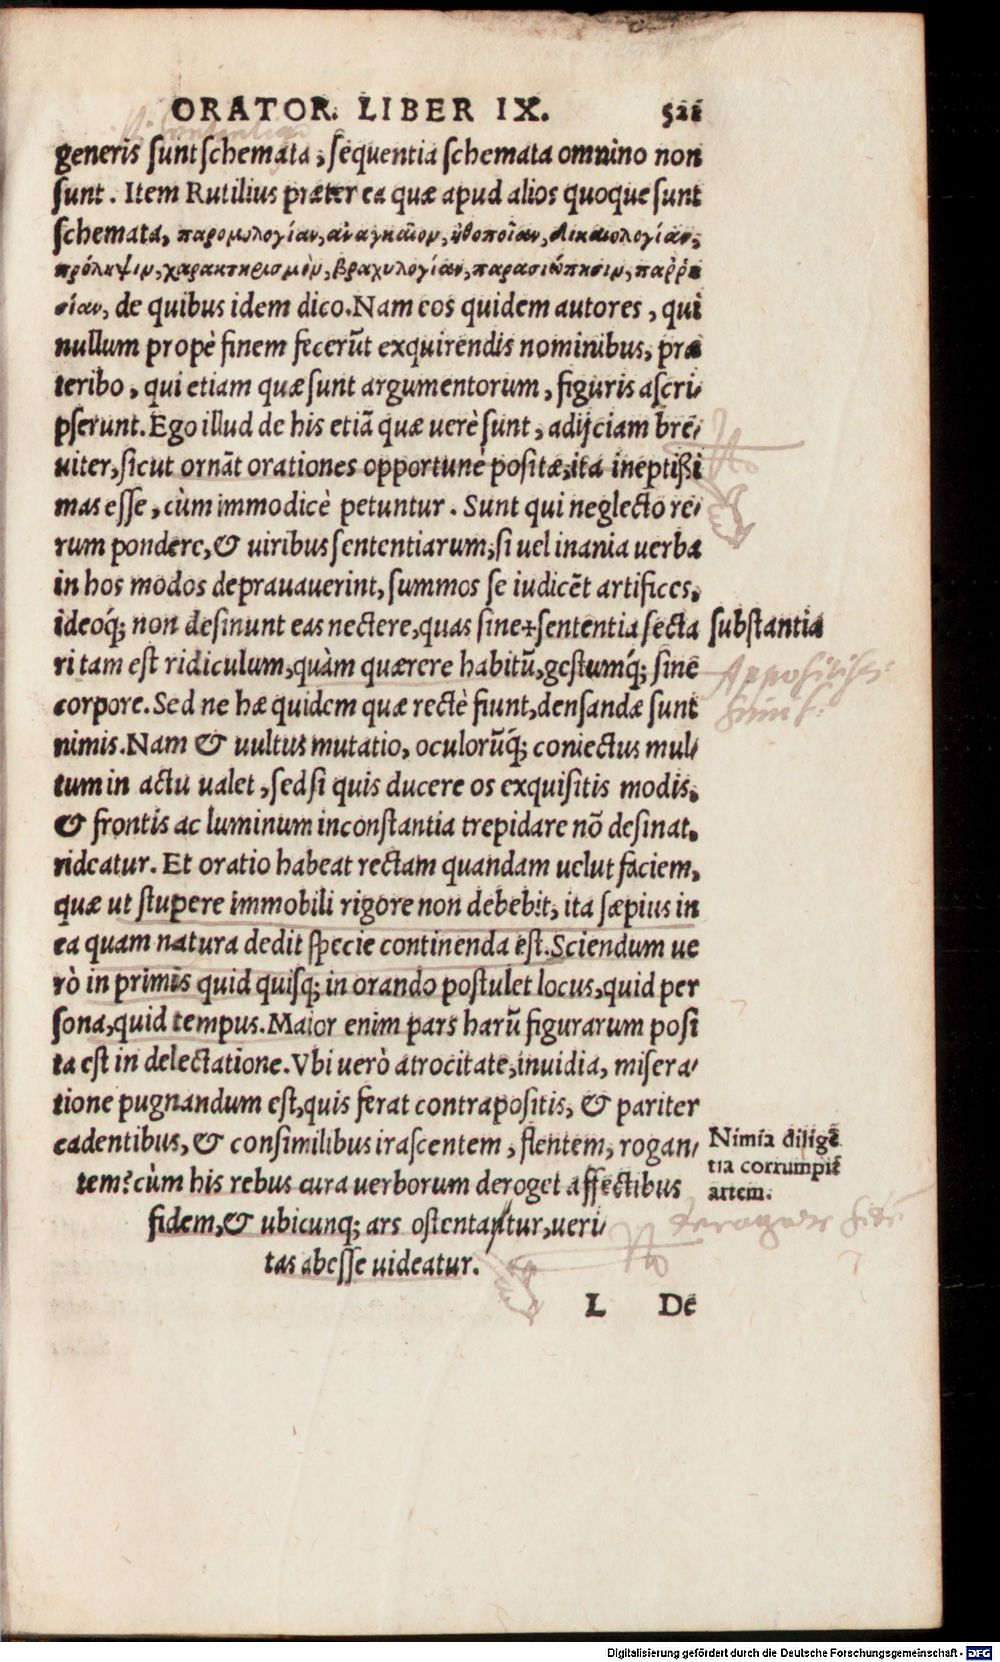 ORATOR. LIBER IX. 521
generis ſunt ſchemata, ſequentia ſchemata omnino non
ſunt. Item Rutilius præter ea quæ apud alios quoque ſunt
ſchemata, παρομολογίαν, ἀναγκαῖον, ἠθοποιΐαν, δικαιολογίαν,
πρόληψιν, χαρακτηρισμὸν, βραχυλογίαν, παρασιώπησιν, παῤῥη
σίαν, de quibus idem dico. Nam eos quidem autores, qui
nullum propè finem fecerũt exquirendis nominibus, præ
teribo, qui etiam quæ ſunt argumentorum, figuris aſcri⸗
pſerunt. Ego illud de his etiã quæ uerè ſunt, adijciam bre⸗
uiter, ſicut ornãt orationes opportunè poſitæ, ita ineptißi
mas eſſe, cùm immodicè petuntur. Sunt qui neglecto re⸗
rum pondere, & uiribus ſententiarum, ſi uel inania uerba
in hos modos deprauauerint, ſummos ſe iudicẽt artifices,
ideóq́; non deſinunt eas nectere, quas ſine+ſententia ſecta ſubſtantia
ri tam eſt ridiculum, quàm quærere habitũ, geſtumq́; ſine
corpore. Sed ne hæ quidem quæ rectè fiunt, denſandæ ſunt
nimis. Nam & uultus mutatio, oculorũq́; coniectus mul⸗
tum in actu ualet, ſed ſi quis ducere os exquiſitis modis,
& frontis ac luminum inconſtantia trepidare nõ deſinat,
rideatur. Et oratio habeat rectam quandam uelut faciem,
quæ ut ſtupere immobili rigore non debebit, ita ſæpius in
ea quam natura dedit ſpecie continenda eſt. Sciendum ue
rò in primis quid quiſq; in orando poſtulet locus, quid per
ſona, quid tempus. Maior enim pars harũ figurarum poſi
ta eſt in delectatione. Vbi uerò atrocitate, inuidia, miſera⸗
tione pugnandum eſt, quis ferat contrapoſitis, & pariter
cadentibus, & conſimilibus iraſcentem, flentem, rogan⸗
tem? cùm his rebus cura uerborum deroget affectibus
fidem, & ubicunq; ars oſtentatur, ueri⸗
tas abeſſe uideatur.
Nimia diligẽ
tia corrumpit
artem.
L De
Digitalisierung gefördert durch die Deutsche Forschungsgemeinschaft - DFG